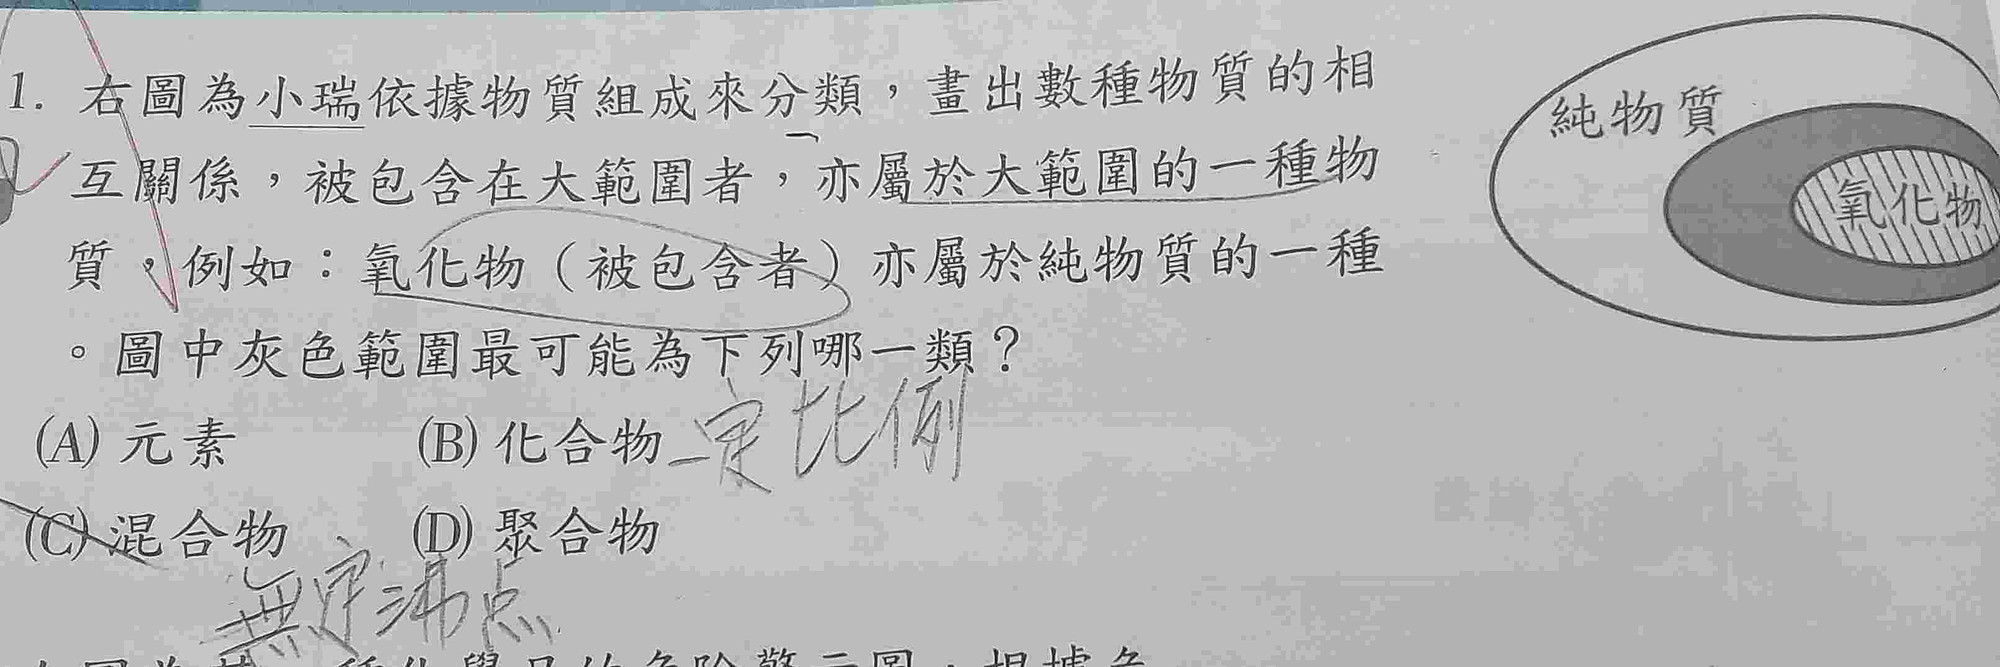 1. 右圖為小瑞依據物質組成來分類，畫出數種物質的相
互關係，被包含在大範圍者，亦屬於大範圍的一種物
質，例如：氧化物（被包含者）亦屬於純物質的一種
。圖中灰色範圍最可能為下列哪一類？
純物質
氧化物
(A) 元素 (B) 化合物 一定比例
(C) 混合物 (D) 聚合物
無定沸点